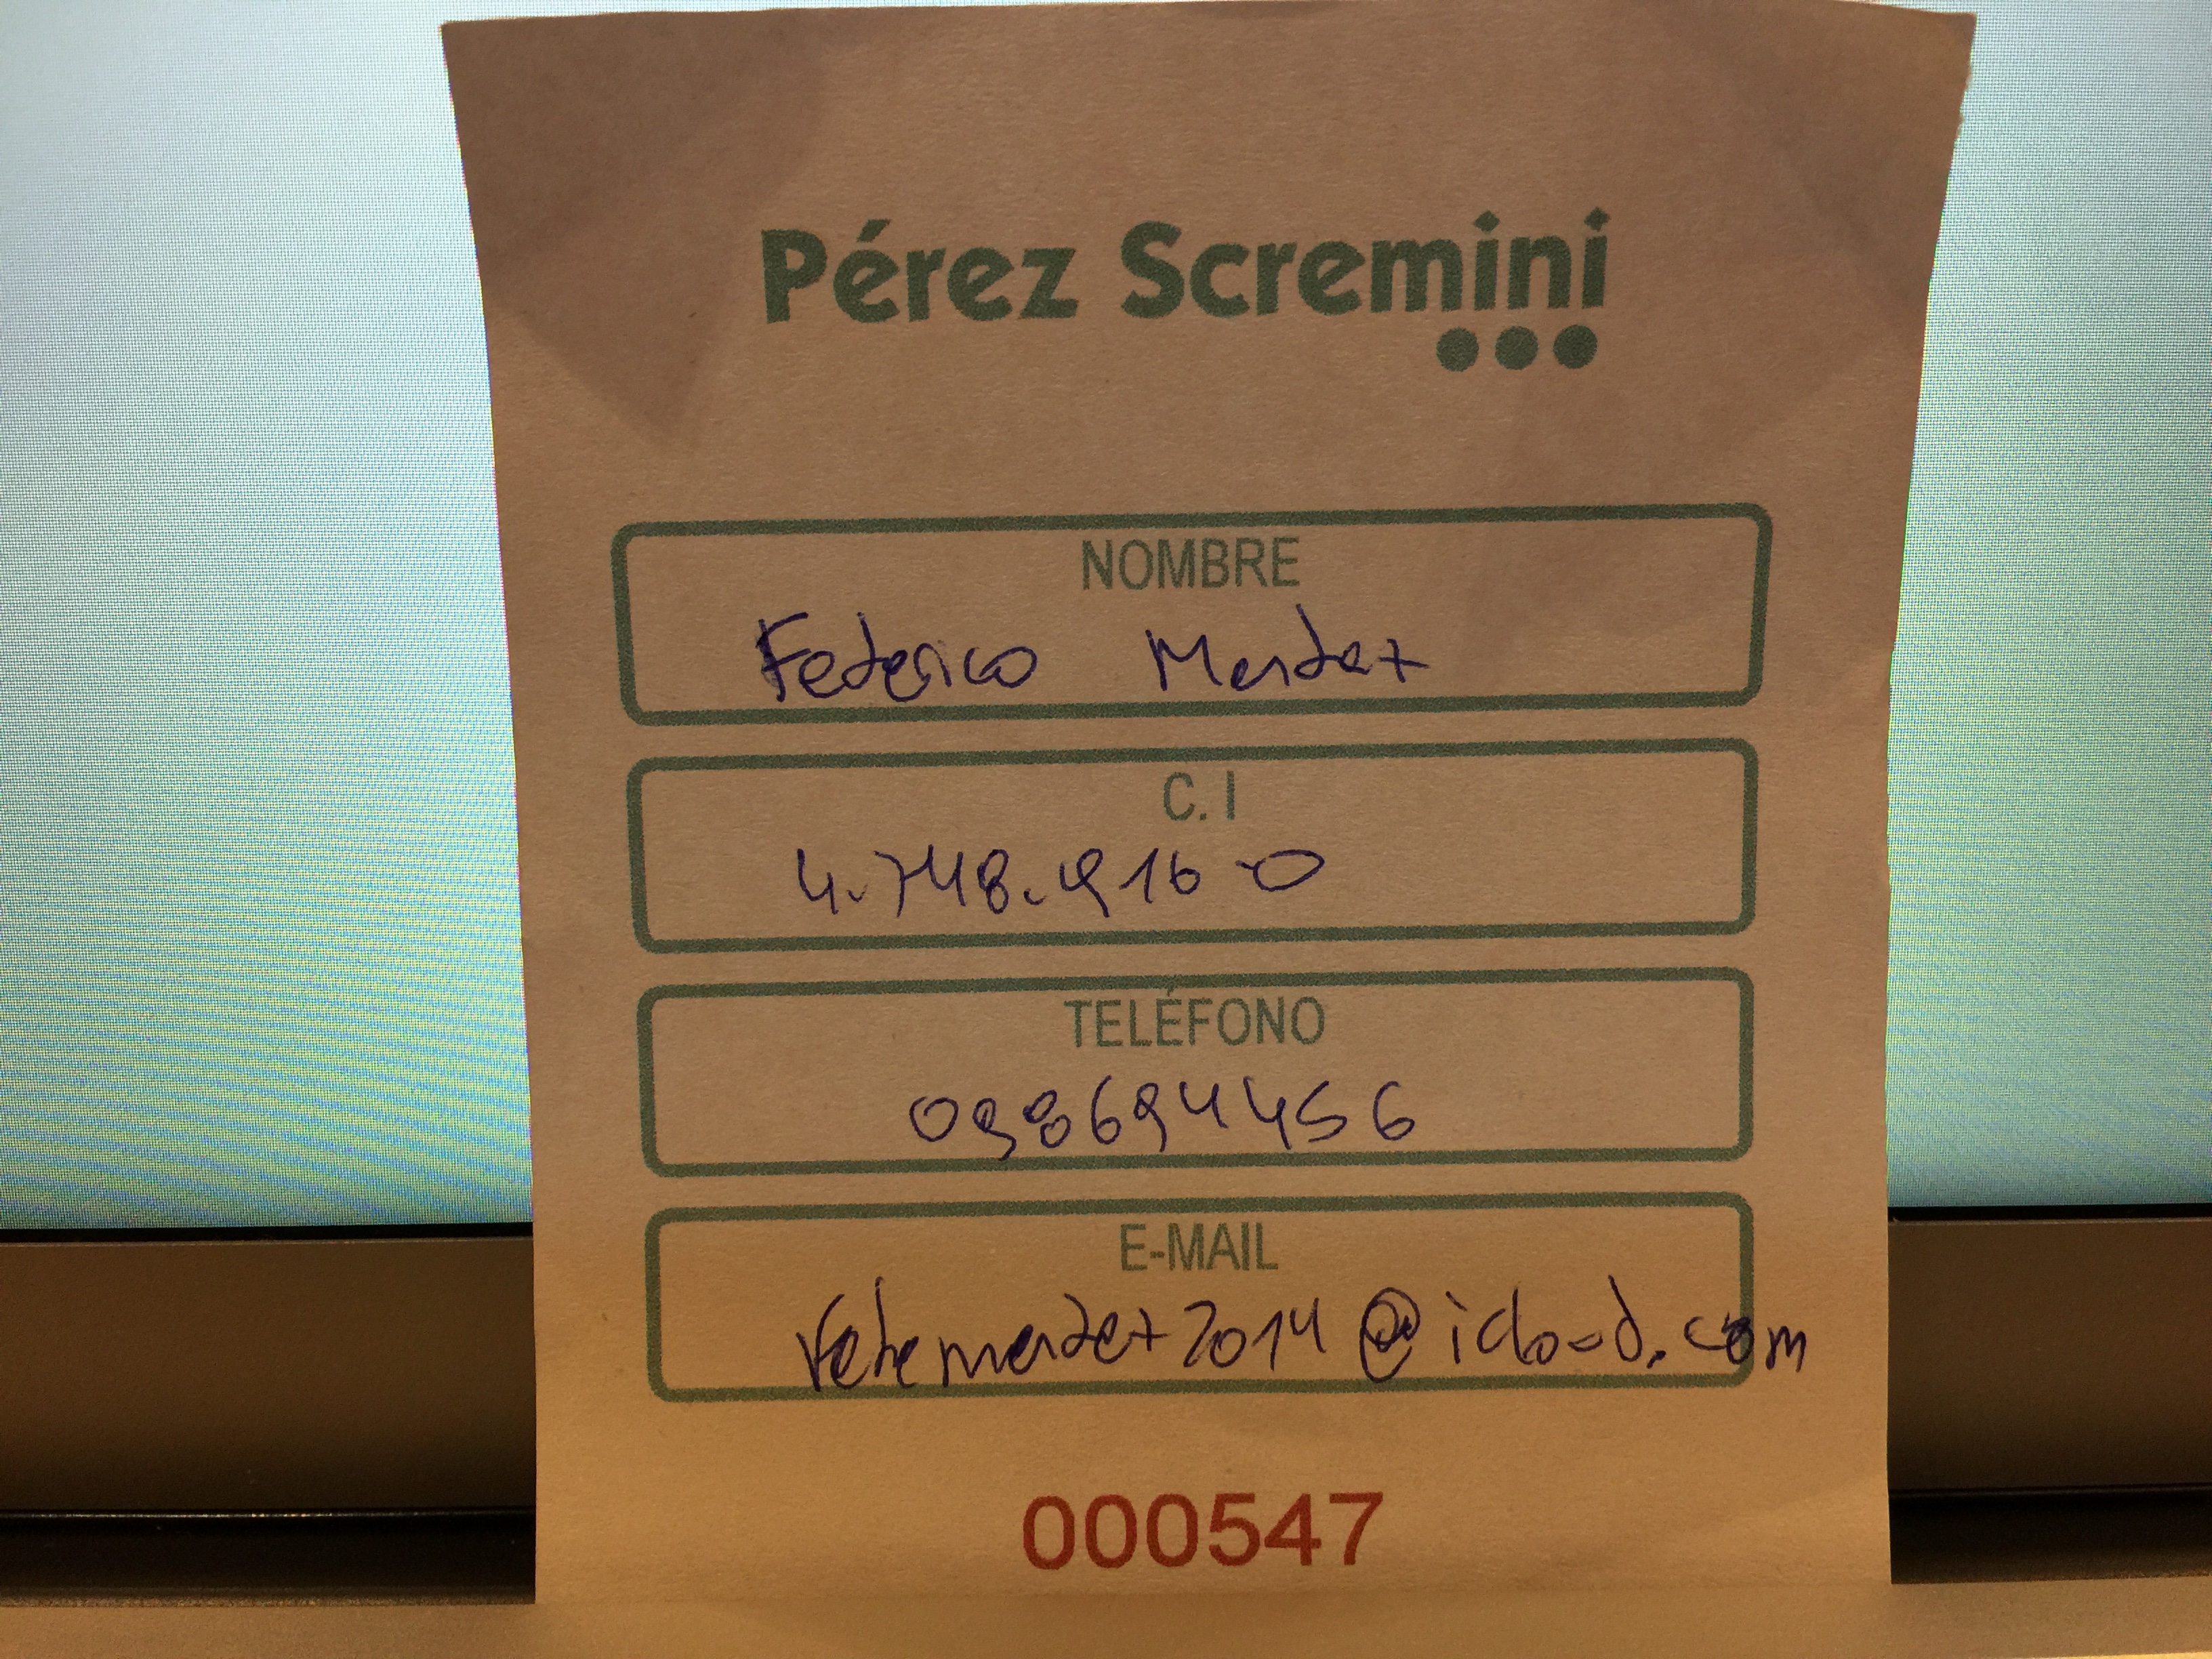 Pérez Scremini
NOMBRE
Federico Mendez
C. I
4.748.916-0
TELÉFONO
098694456
E-MAIL
fedemendez2014@icloud.com
000547